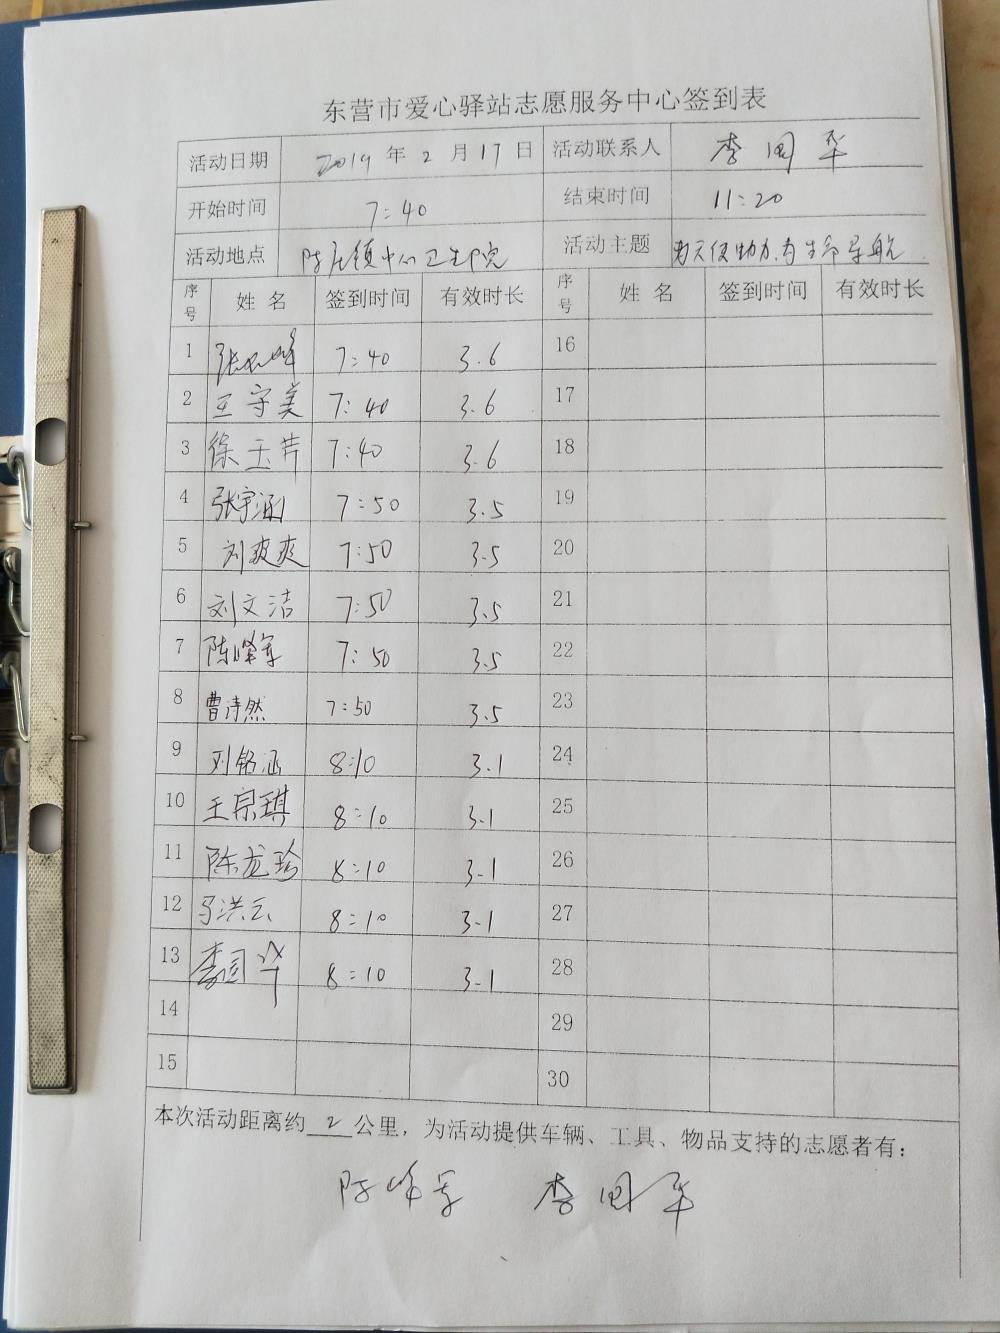 东营市爱心驿站志愿服务中心签到表
活动日期 2019 年 2 月 17 日 活动联系人 李国华
开始时间 7:40 结束时间 11:20
活动地点 陈庄镇中心卫生院 活动主题 为天使助力,为生命导航
序号 姓名 签到时间 有效时长 序号 姓名 签到时间 有效时长
1 7:40 3.6 16
2 王守美 7:40 3.6 17
3 徐玉芹 7:40 3.6 18
4 张宇涵 7:50 3.5 19
5 刘爽爽 7:50 3.5 20
6 刘文洁 7:50 3.5 21
7 陈峰军 7:50 3.5 22
8 曹诗然 7:50 3.5 23
9 刘铭涵 8:10 3.1 24
10 王宗琪 8:10 3.1 25
11 陈龙珍 8:10 3.1 26
12 马洪云 8:10 3.1 27
13 李国华 8:10 3.1 28
14 29
15 30
本次活动距离约 2 公里，为活动提供车辆、工具、物品支持的志愿者有：
陈峰军 李国华